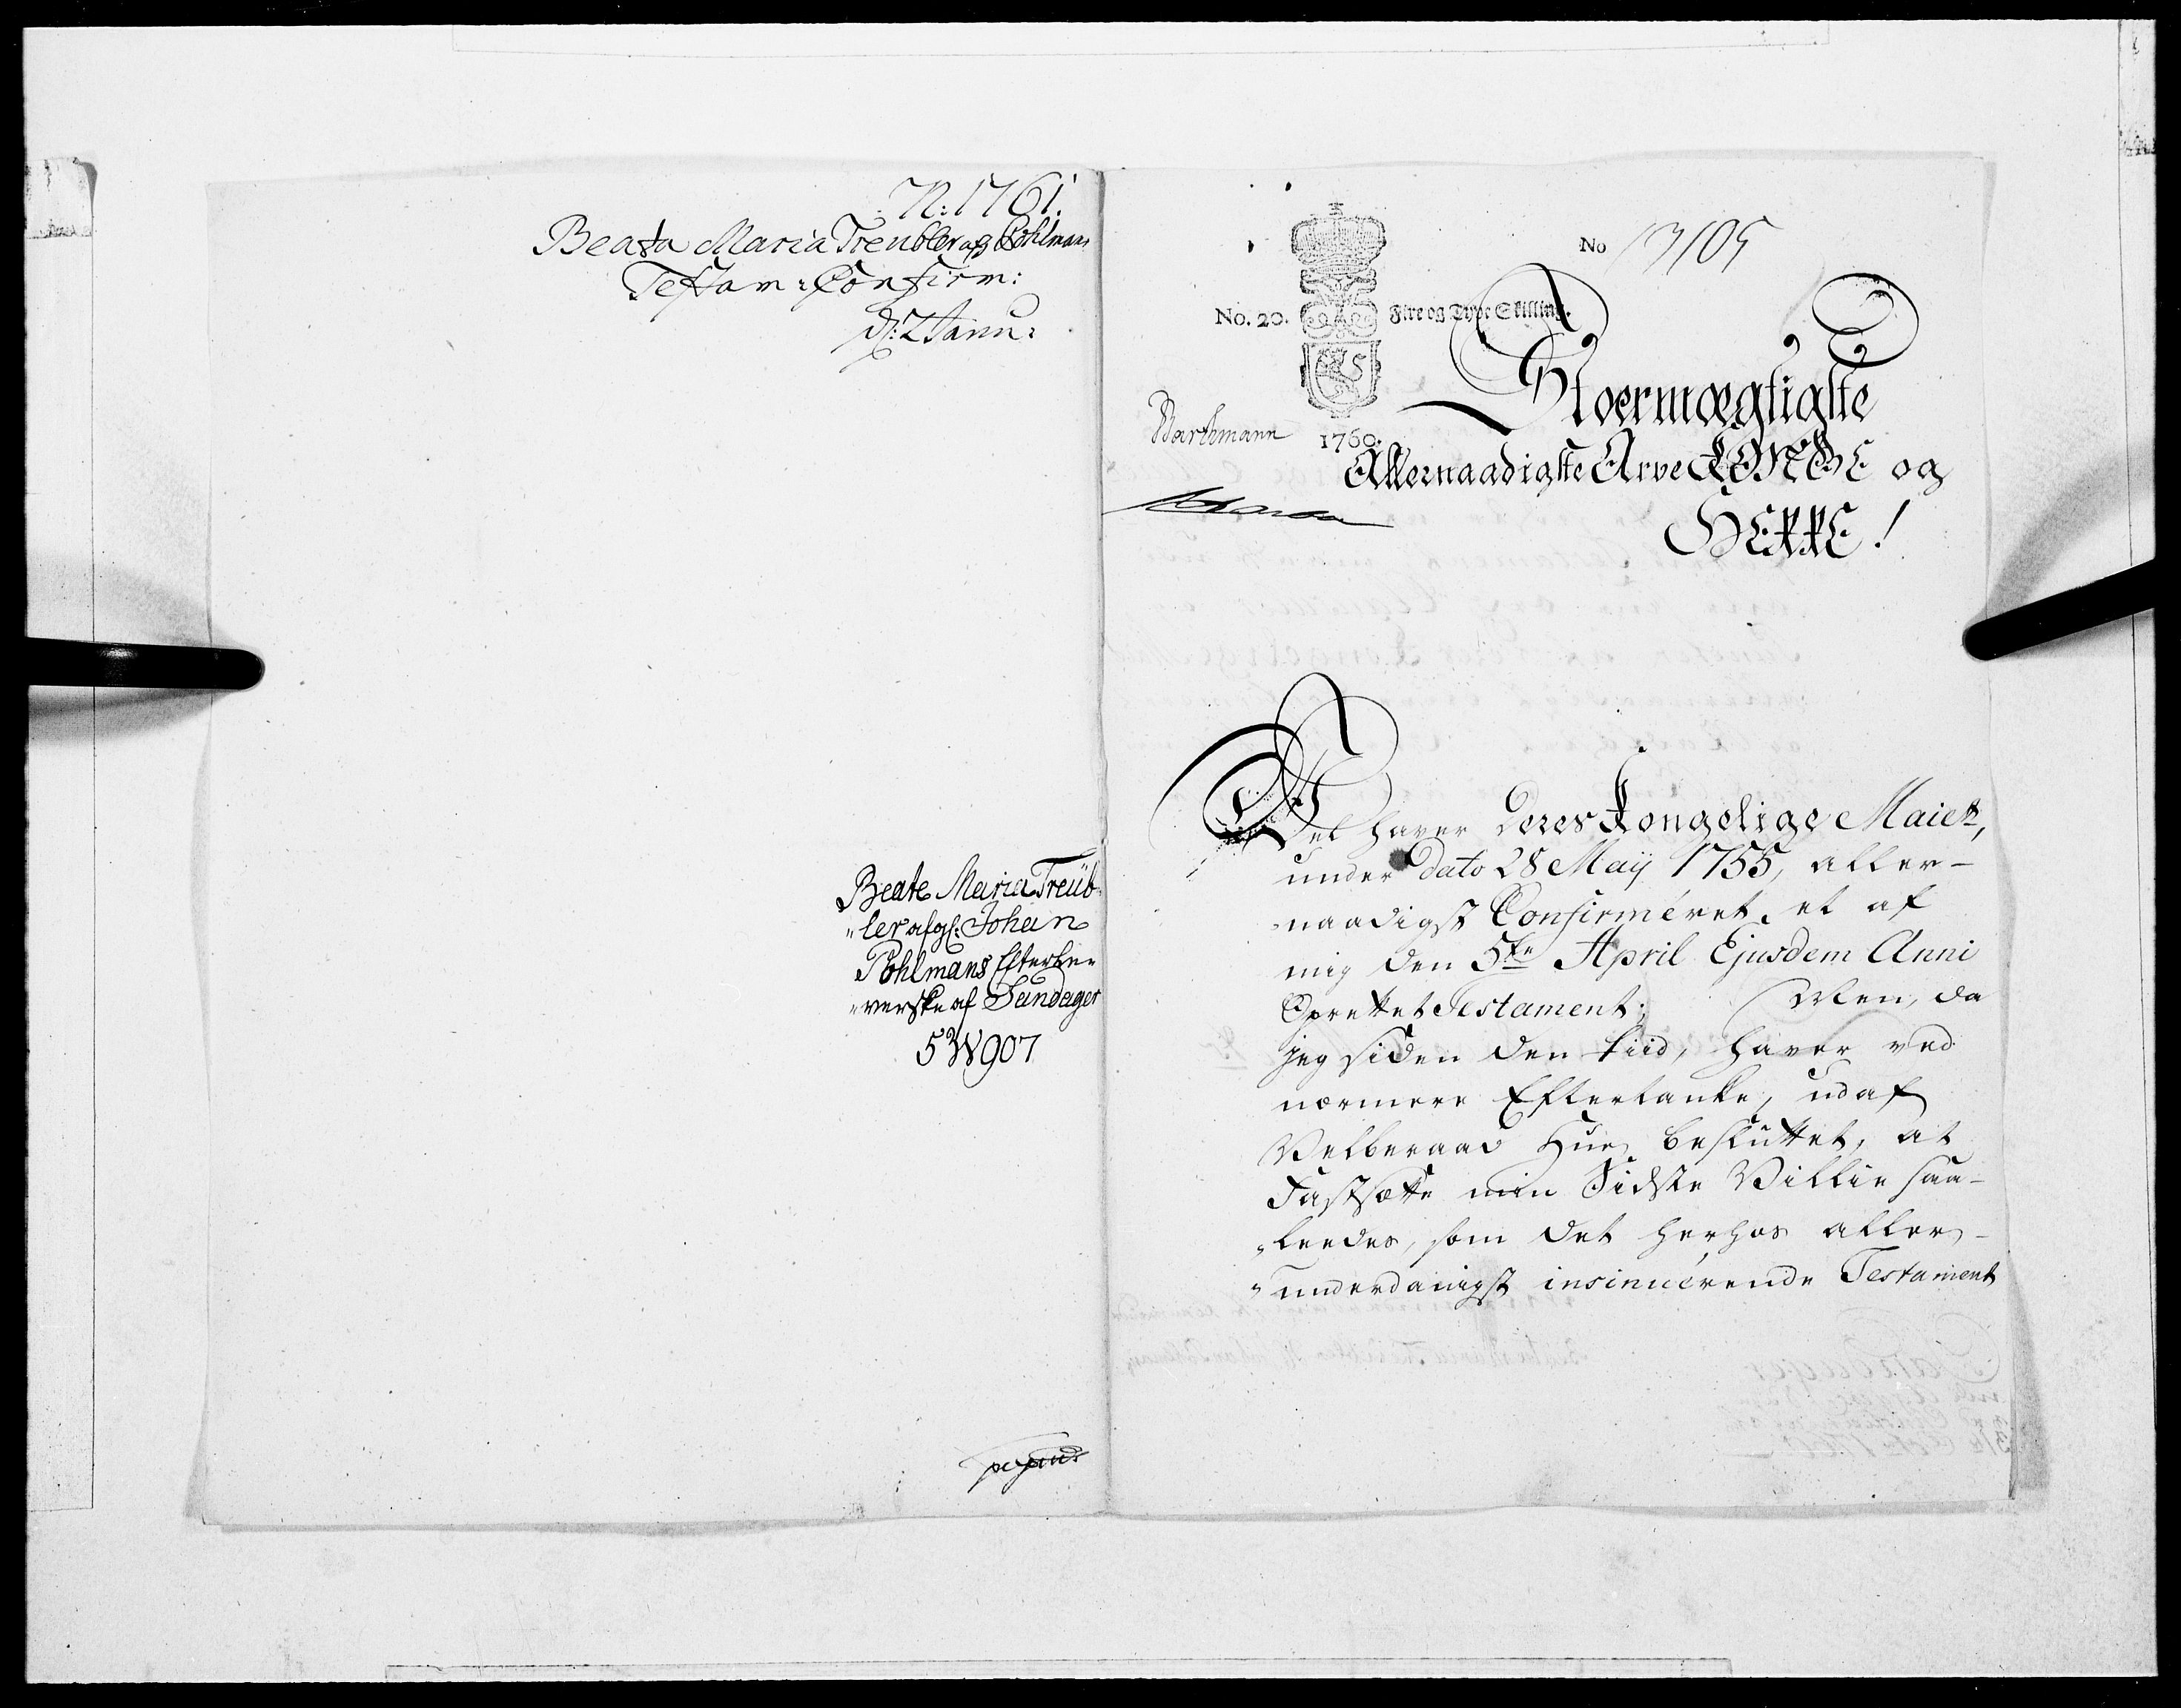 N: 1761.
Beata Maria Treubler afg Pohlmans
Testam: Confirm:
d: 2 Janu:
Beate Maria Treüb-
"ler afgl: Johan
Pohlmans Efterle-
"verske af Sandager
5 W 907
No 13105
No. 20. Fire og Tyve Skilling.
Barthmann 1760.
Stoermægtigste
Allernaadigste Arve KONGE og
HERRE!
Det haver Deres Kongelige Maiet,
under Dato 28 Maij 1755, aller-
naadigst Confirméret et af
mig den 5te April Ejusdem Anni
Oprettet Testament; Men, da
jeg siden den tiid, haver ved
nærmere Eftertanke, udaf
Velberaad Hue besluttet, at
Fastsætte min Sidste Villie saa-
"leedes, som det herhos aller-
"underdanigst insinuérende Testament